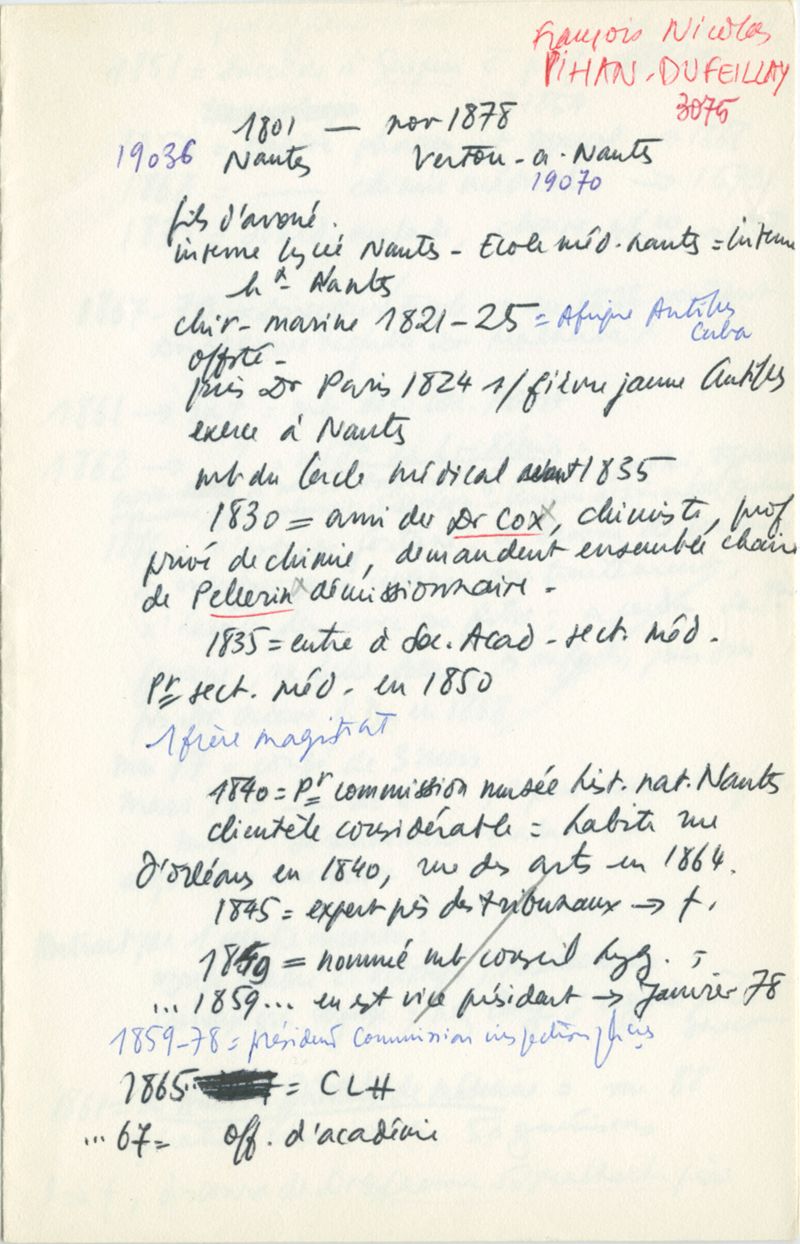 François Nicolas
PIHAN-DUFEILLAY
3075
1801 — nov 1878
19036 Nantes Vertou-a-Nantes
19070
fils d'avoué.
interne lycée Nantes - Ecole méd. nantes = interne
hx- Nantes
chir- marine 1821-25 = Afrique Antilles
Cuba
près Dr Paris 1824 s/ fièvre jaune Antilles
exerce à Nantes
mb du Cercle médical avant 1835
1830 = ami du Dr Cox x, chimiste, prof
privé de chimie, demandent ensemble chaire
de Pellerin x démissionnaire -
1835 = entre à Soc. Acad - sect. méd.
Pr sect. méd. en 1850
1 frère magistrat
1840 = Pr commission musée hist. nat. Nantes
clientèle considérable = habite rue
d'Orléans en 1840, rue des arts en 1864.
1845 = expert près des tribunaux → †.
= nommé mb conseil hyg. ;
... 1859... en est vice président → Janvier 78
1859-78 = président Commission inspection phcies
1865 = CLH
... 67 = Off. d'académie